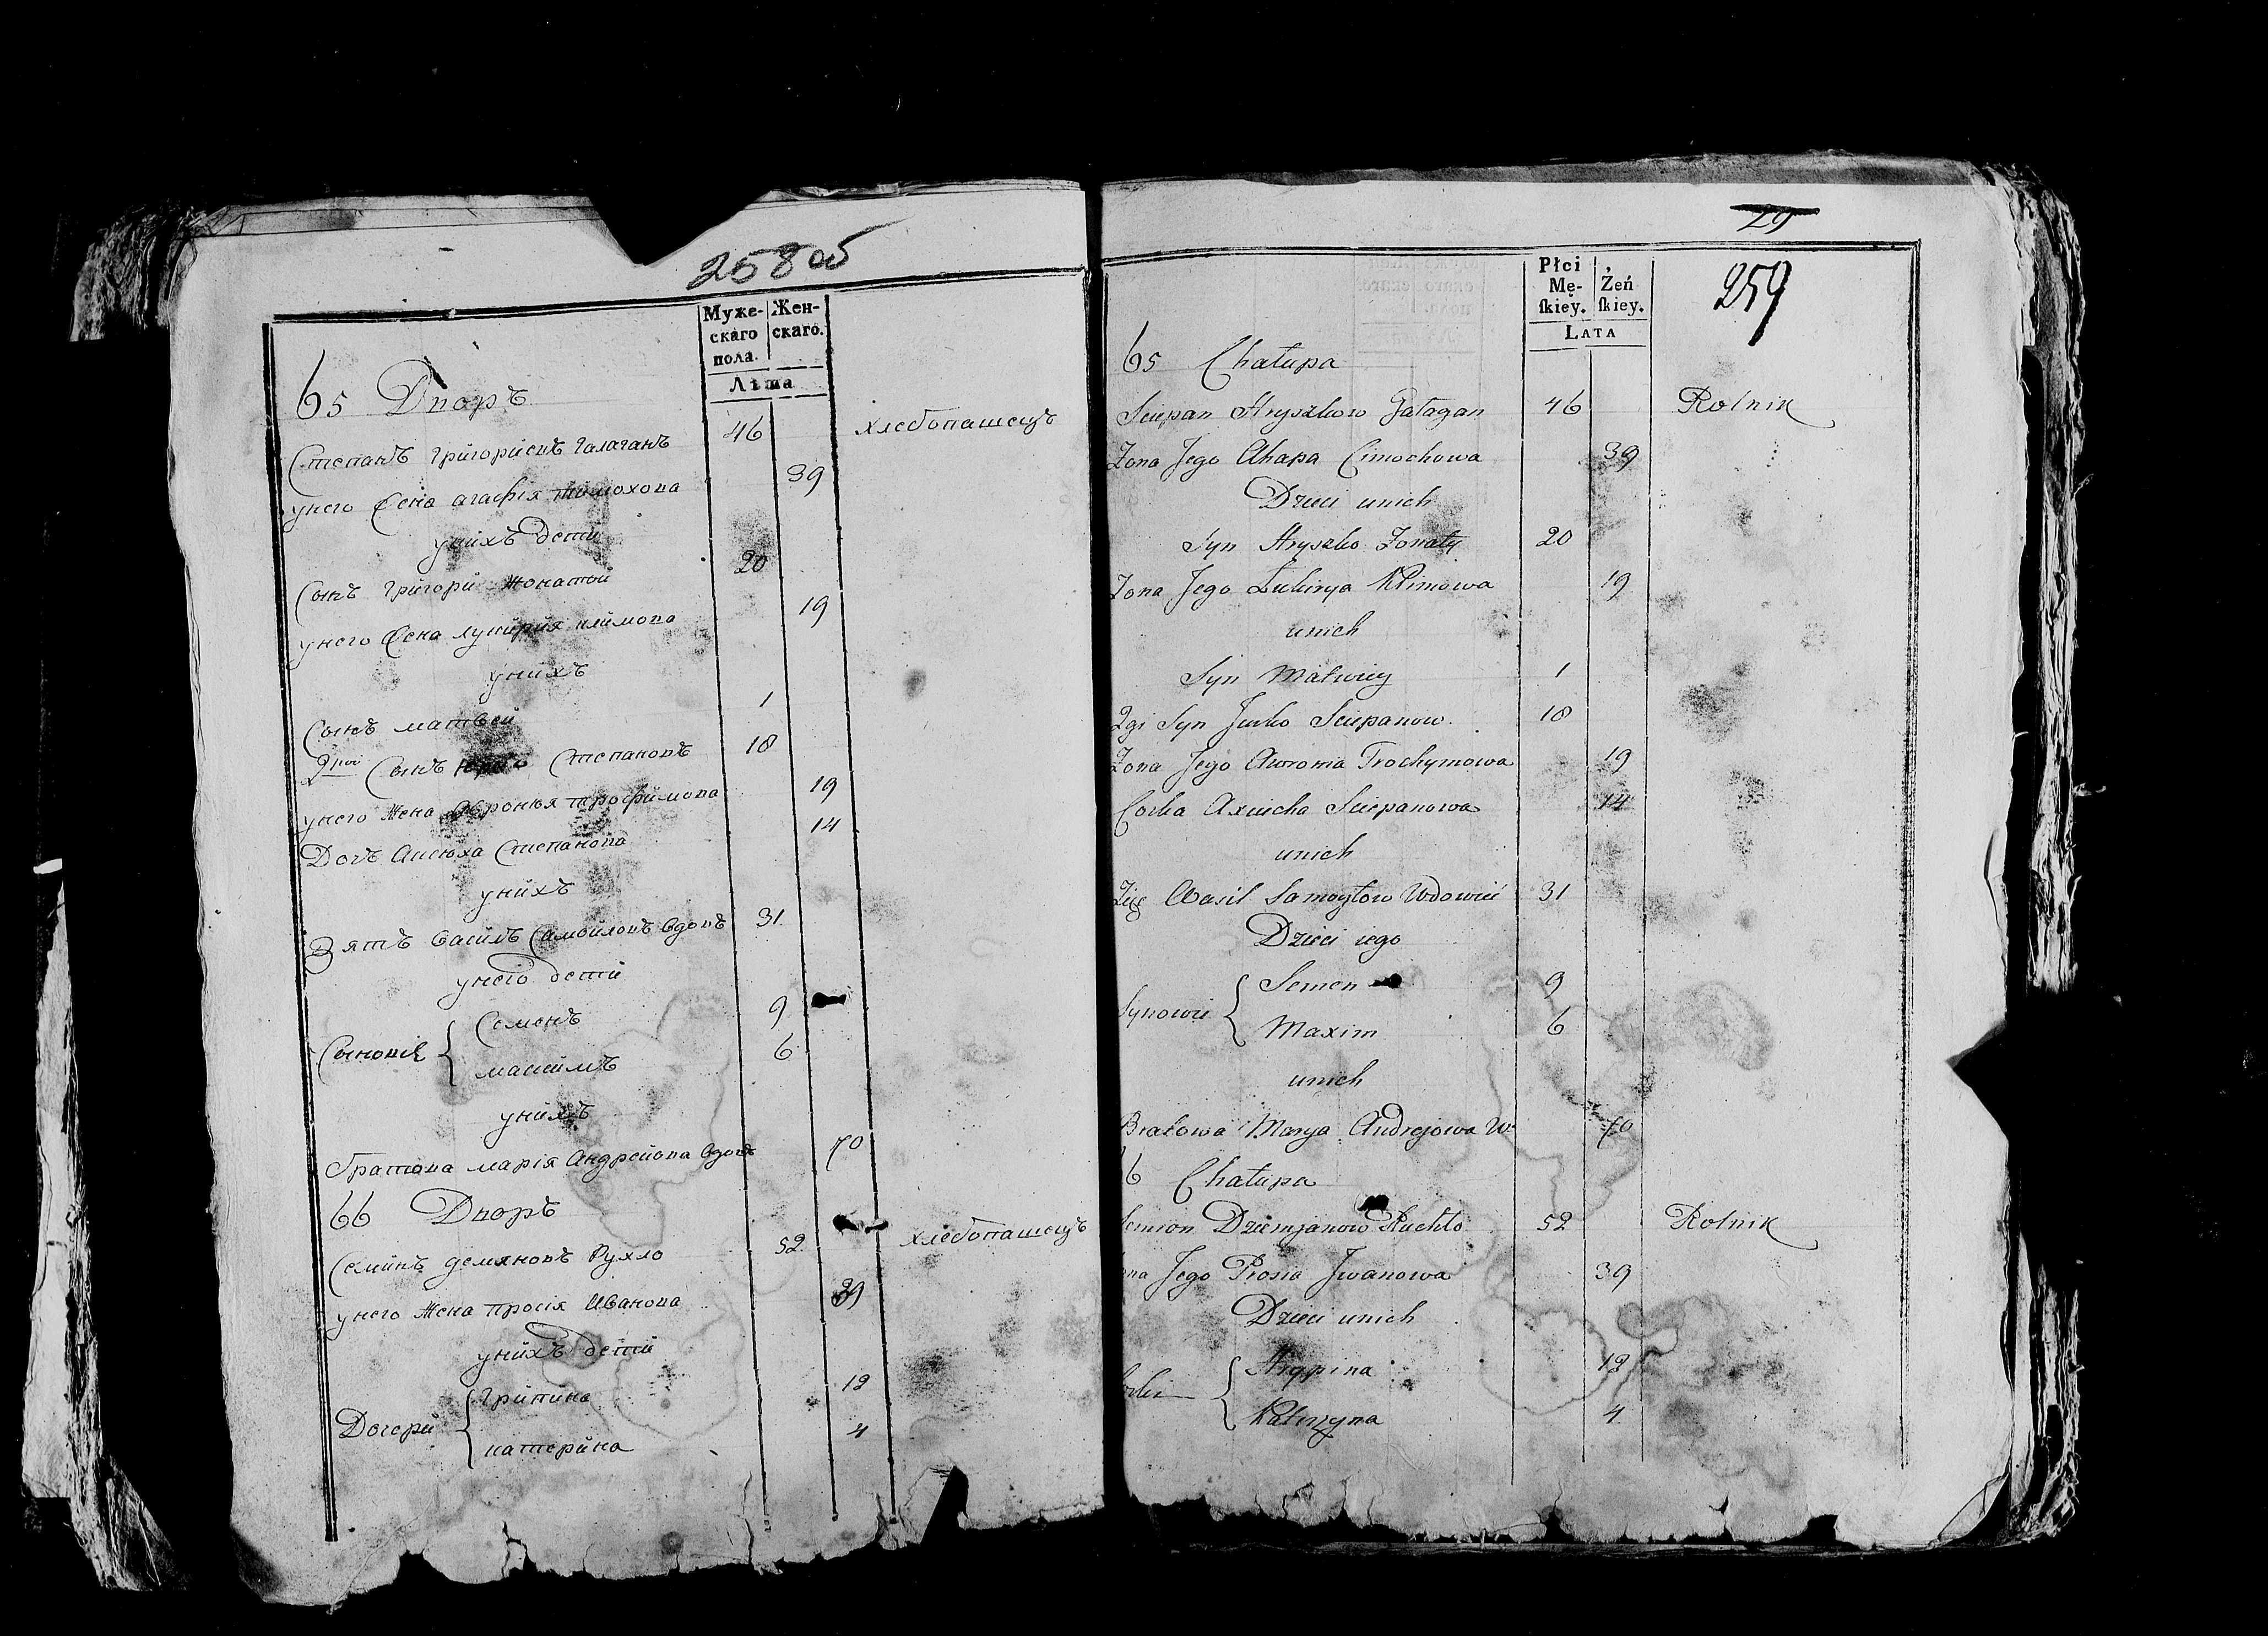 258 об
Муже-
скаго
пола.
Жен-
скаго.
Лѣта
65 Дворъ
Степанъ Григорйевъ Галаганъ 46 хлебопашецъ
унего Жена агафія тимохова 39
унйхъ детй
Сынъ Григорй Жонатый 20
унего Жена лукйрия клймова 19
унйхъ
Сынъ матвей 1
2гий Сынъ Юрко Степановъ 18
унего Жена Авронья трофймова 19
Дочъ Аксюха Степанова 14
унйхъ
Зятъ Васйлъ Самойловъ Вдовъ 31
унего детй
Сыновіе { Семенъ 9
максймъ 6
унйхъ
братова марія Андрейова Вдова 70
66 Дворъ
Семйнъ демяновъ Рухло 52 хлебопашецъ
унего Жена просія Иванова 39
унйхъ детй
Дочерй { Грйпина 12
катерйна 4
29
259
Płci
Mę-
ſkiey.
Żeń
ſkiey.
LATA
65 Chałupa
Sciepan Hryszkow Gałagan 46 Rolnik
Zona Jego Ahapa Cimochowa 39
Dzieci unich
Syn Hryszko Zonaty 20
Zona Jego Łukirya Klimowa 19
unich
Syn Matwiey 1
2gi Syn Jurko Sciepanow. 18
Zona Jego Awronia Trochymowa 19
Corka Axiucha Sciepanowa 14
unich
Zięć Wasil Samoyłow Wdowiec 31
Dzieci iego
Synowie { Semen 9
Maxim 6
unich
Bratowa Marya Andrejowa W. 70
6 Chałupa
Semion Dziemjanow Ruchło 52 Rolnik
ona Jego Prosia Jwanowa 39
Dzieci unich
orki { Hrypina 12
Katrzyna 4